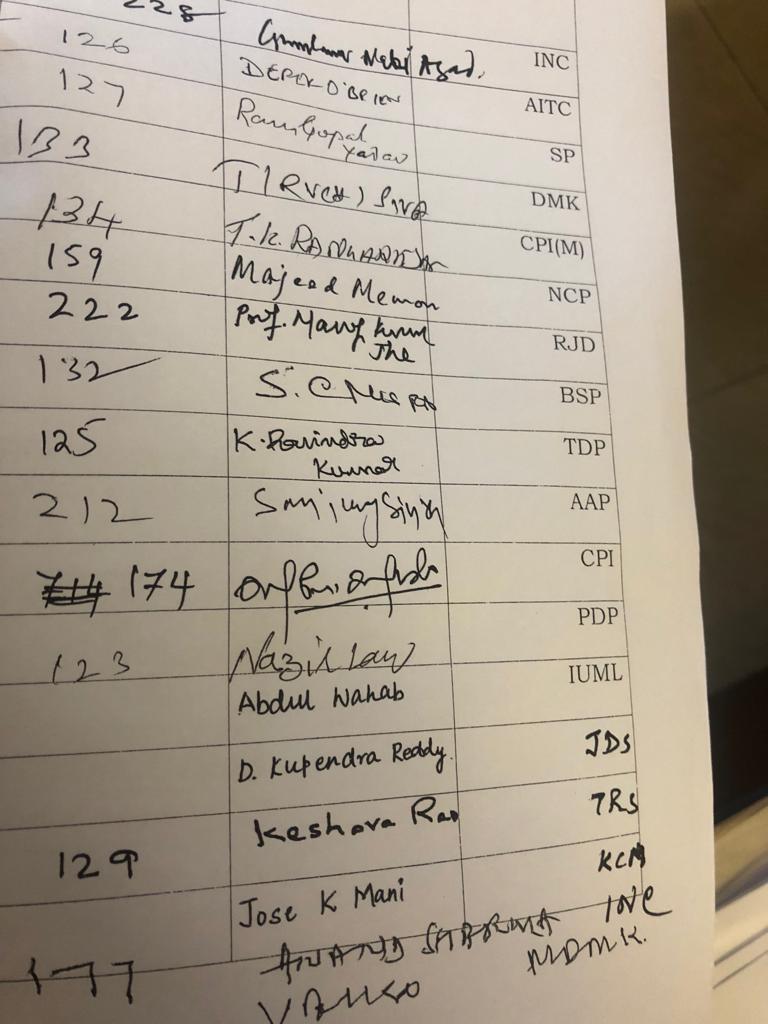 228 Ghulam Nabi Azad. INC
126 DEREK O'BRIEN AITC
127 Ramgopal Yadav SP
133 T I RUCHI SIVA DMK
134 T.K. RANGARAJAN CPI(M)
159 Majeed Memon NCP
222 Prof. Manoj Kumar Jha RJD
132 S. C BSP
125 K. Ravindra Kumar TDP
212 Sanjay Singh AAP
174 CPI
123 Nazir Laway PDP
Abdul Wahab IUML
D. Kupendra Reddy. JDS
129 Keshava Rao TRS
Jose K Mani KCM
177 ANAND SHARMA INC
VAIKO MDMK.